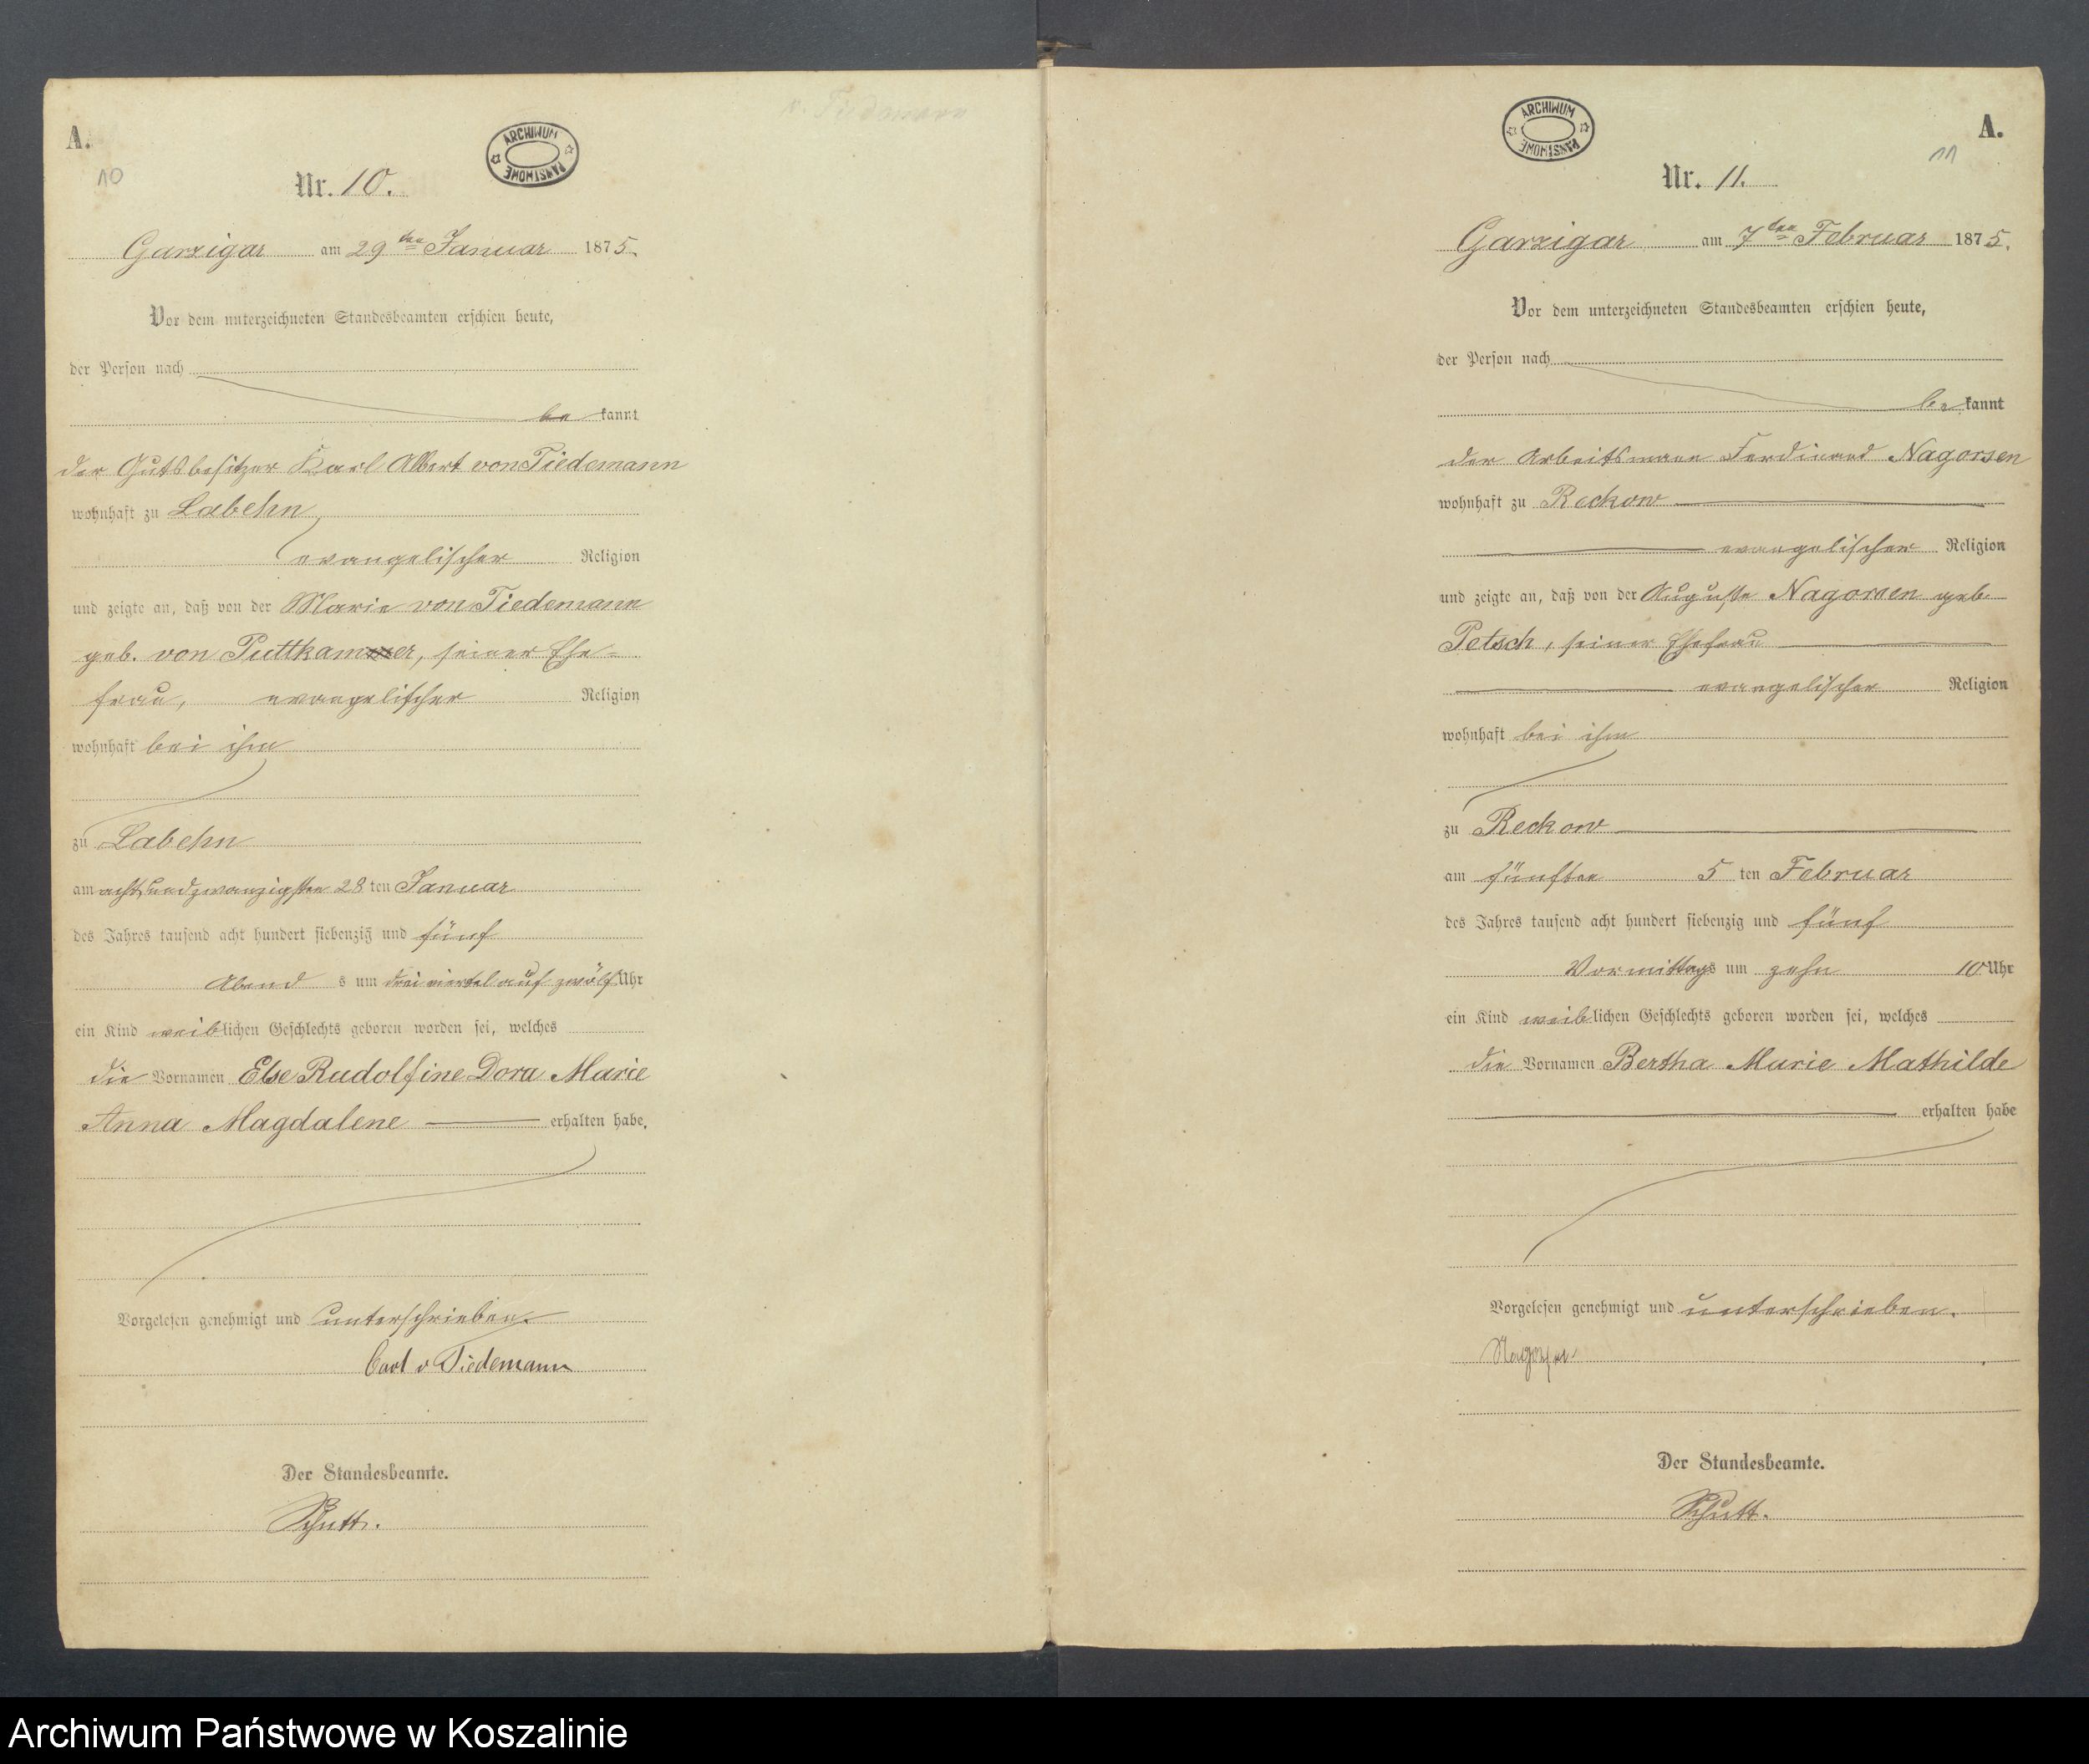 v. Tiedemann
A.
10
ARCHIWUM PAŃSTWOWE
Nr. 10.
Garzigar am 29ten Januar 1875.
Vor dem unterzeichneten Standesbeamten erschien heute,
der Person nach
be kannt
der Gutsbesitzer Karl Albert von Tiedemann
wohnhaft zu Labehn
evangelischer Religion
und zeigte an, daß von der Marie von Tiedemann
geb. von Puttkamer, seiner Ehe=
frau, evangelischer Religion
wohnhaft bei ihm
zu Labehn
am acht und zwanzigsten 28 ten Januar
des Jahres tausend acht hundert siebenzig und fünf
Abend s um dreiviertel auf zwölf Uhr
ein Kind weiblichen Geschlechts geboren worden sei, welches
die Vornamen Else Rudolfine Dora Marie
Anna Magdalene erhalten habe.
Vorgelesen genehmigt und unterschrieben.
Carl v Tiedemann
Der Standesbeamte.
Schutt.
ARCHIWUM PAŃSTWOWE
A.
11
Nr. 11.
Garzigar am 7ten Februar 1875.
Vor dem unterzeichneten Standesbeamten erschien heute,
der Person nach
be kannt
der Arbeitsmann Ferdinand Nagorsen
wohnhaft zu Reckow
evangelischer Religion
und zeigte an, daß von der Auguste Nagorsen geb.
Petsch, seiner Ehefrau
evangelischer Religion
wohnhaft bei ihm
zu Reckow
am fünften 5 ten Februar
des Jahres tausend acht hundert siebenzig und fünf
Vormittags um zehn 10 Uhr
ein Kind weiblichen Geschlechts geboren worden sei, welches
die Vornamen Bertha Marie Mathilde
erhalten habe
Vorgelesen genehmigt und unterschrieben.
Nagorsen
Der Standesbeamte.
Schutt.
Archiwum Państwowe w Koszalinie